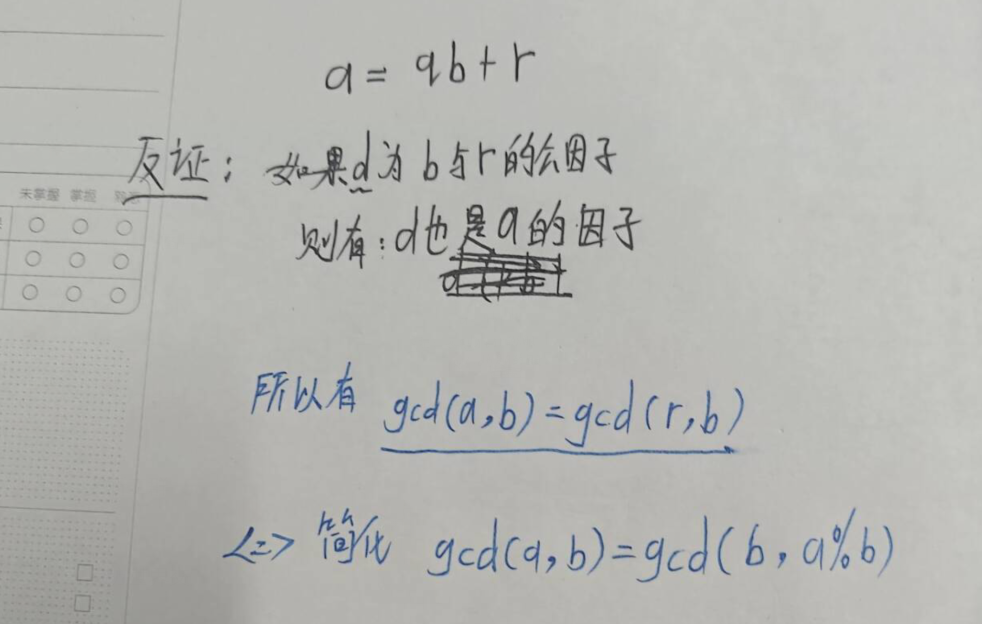 a = qb + r
反证: 如果d为b与r的公因子
未掌握 掌握
则有: d也是a的因子
所以有 gcd(a,b)=gcd(r,b)
<=> 简化 gcd(a,b)=gcd(b, a%b)